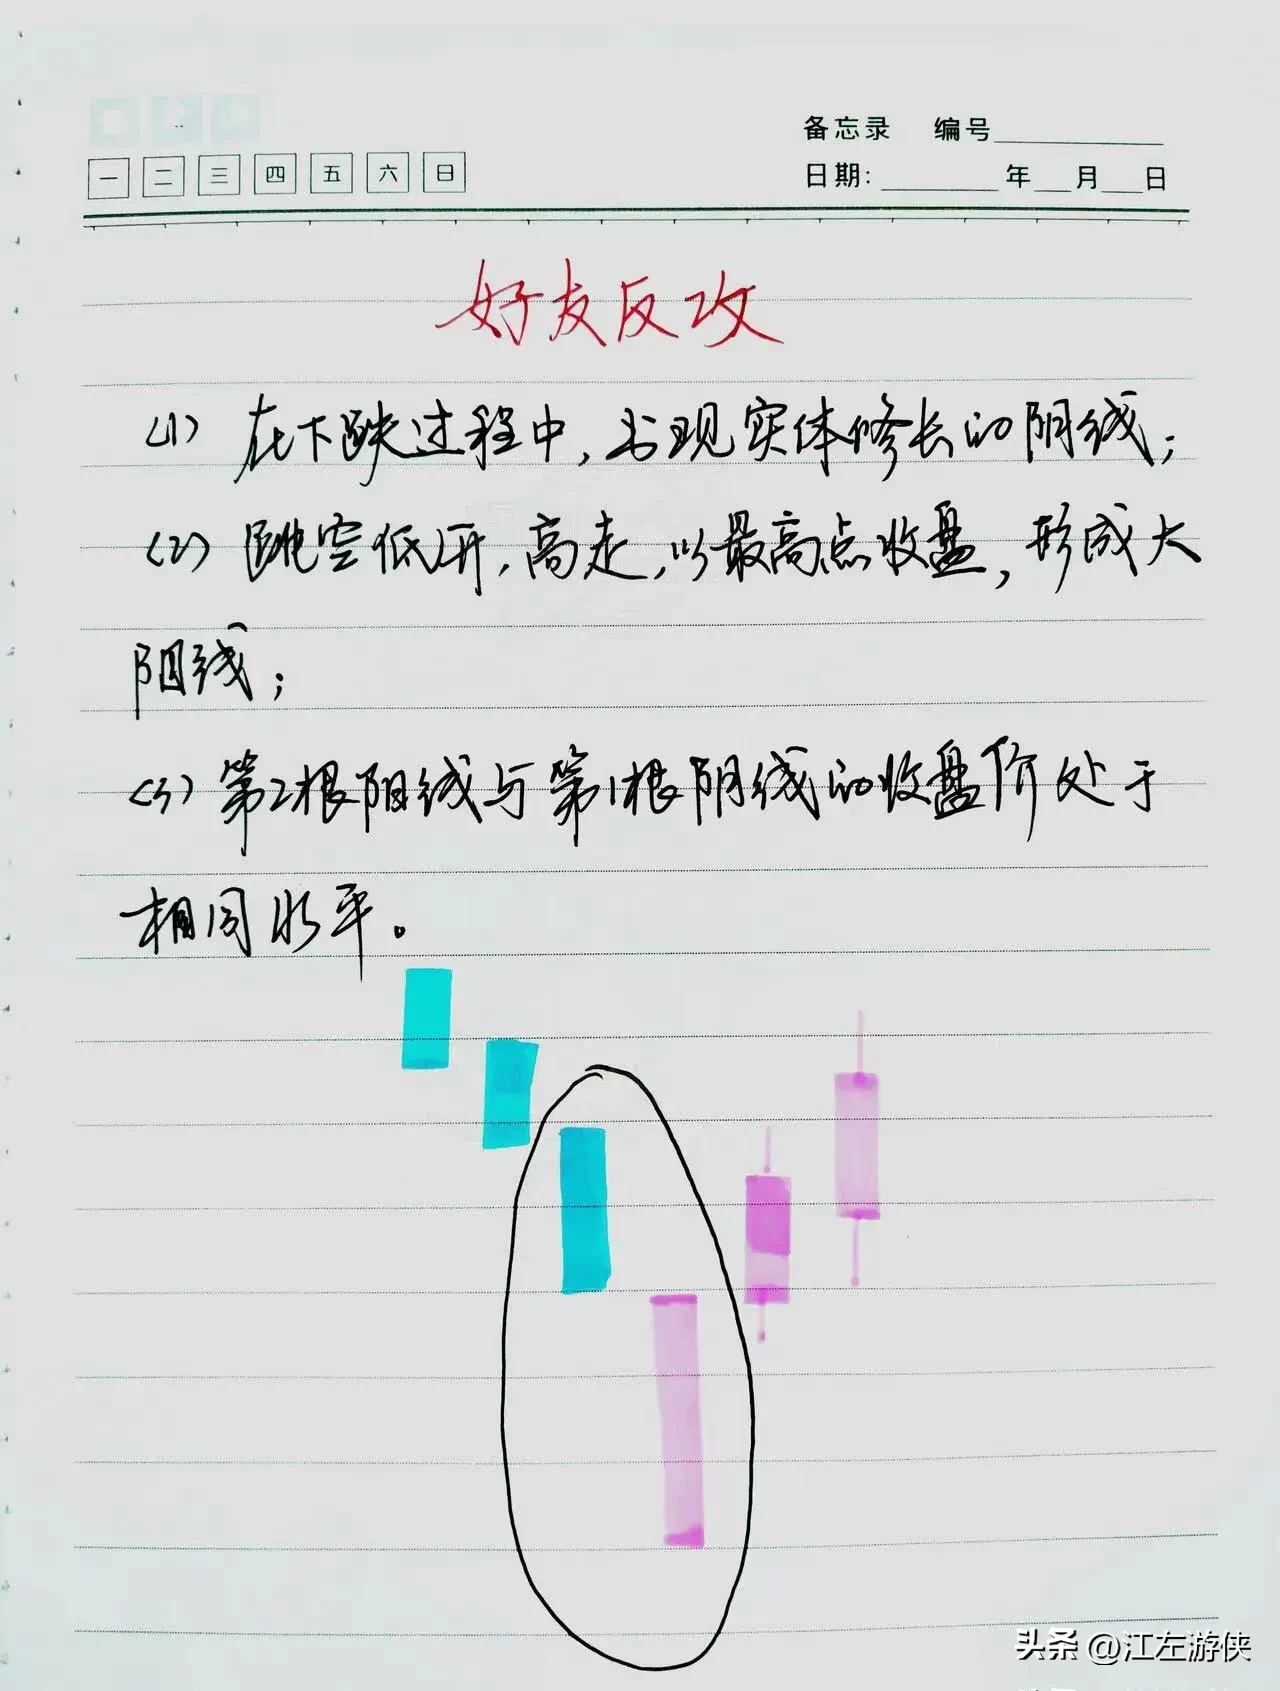 备忘录 编号
一 二 三 四 五 六 日
日期: 年 月 日
好友反攻
(1) 在下跌过程中,出现实体修长的阴线;
(2) 跳空低开,高走,以最高点收盘,形成大
阳线;
(3) 第2根阳线与第1根阴线的收盘价处于
相同水平。
头条 @江左游侠